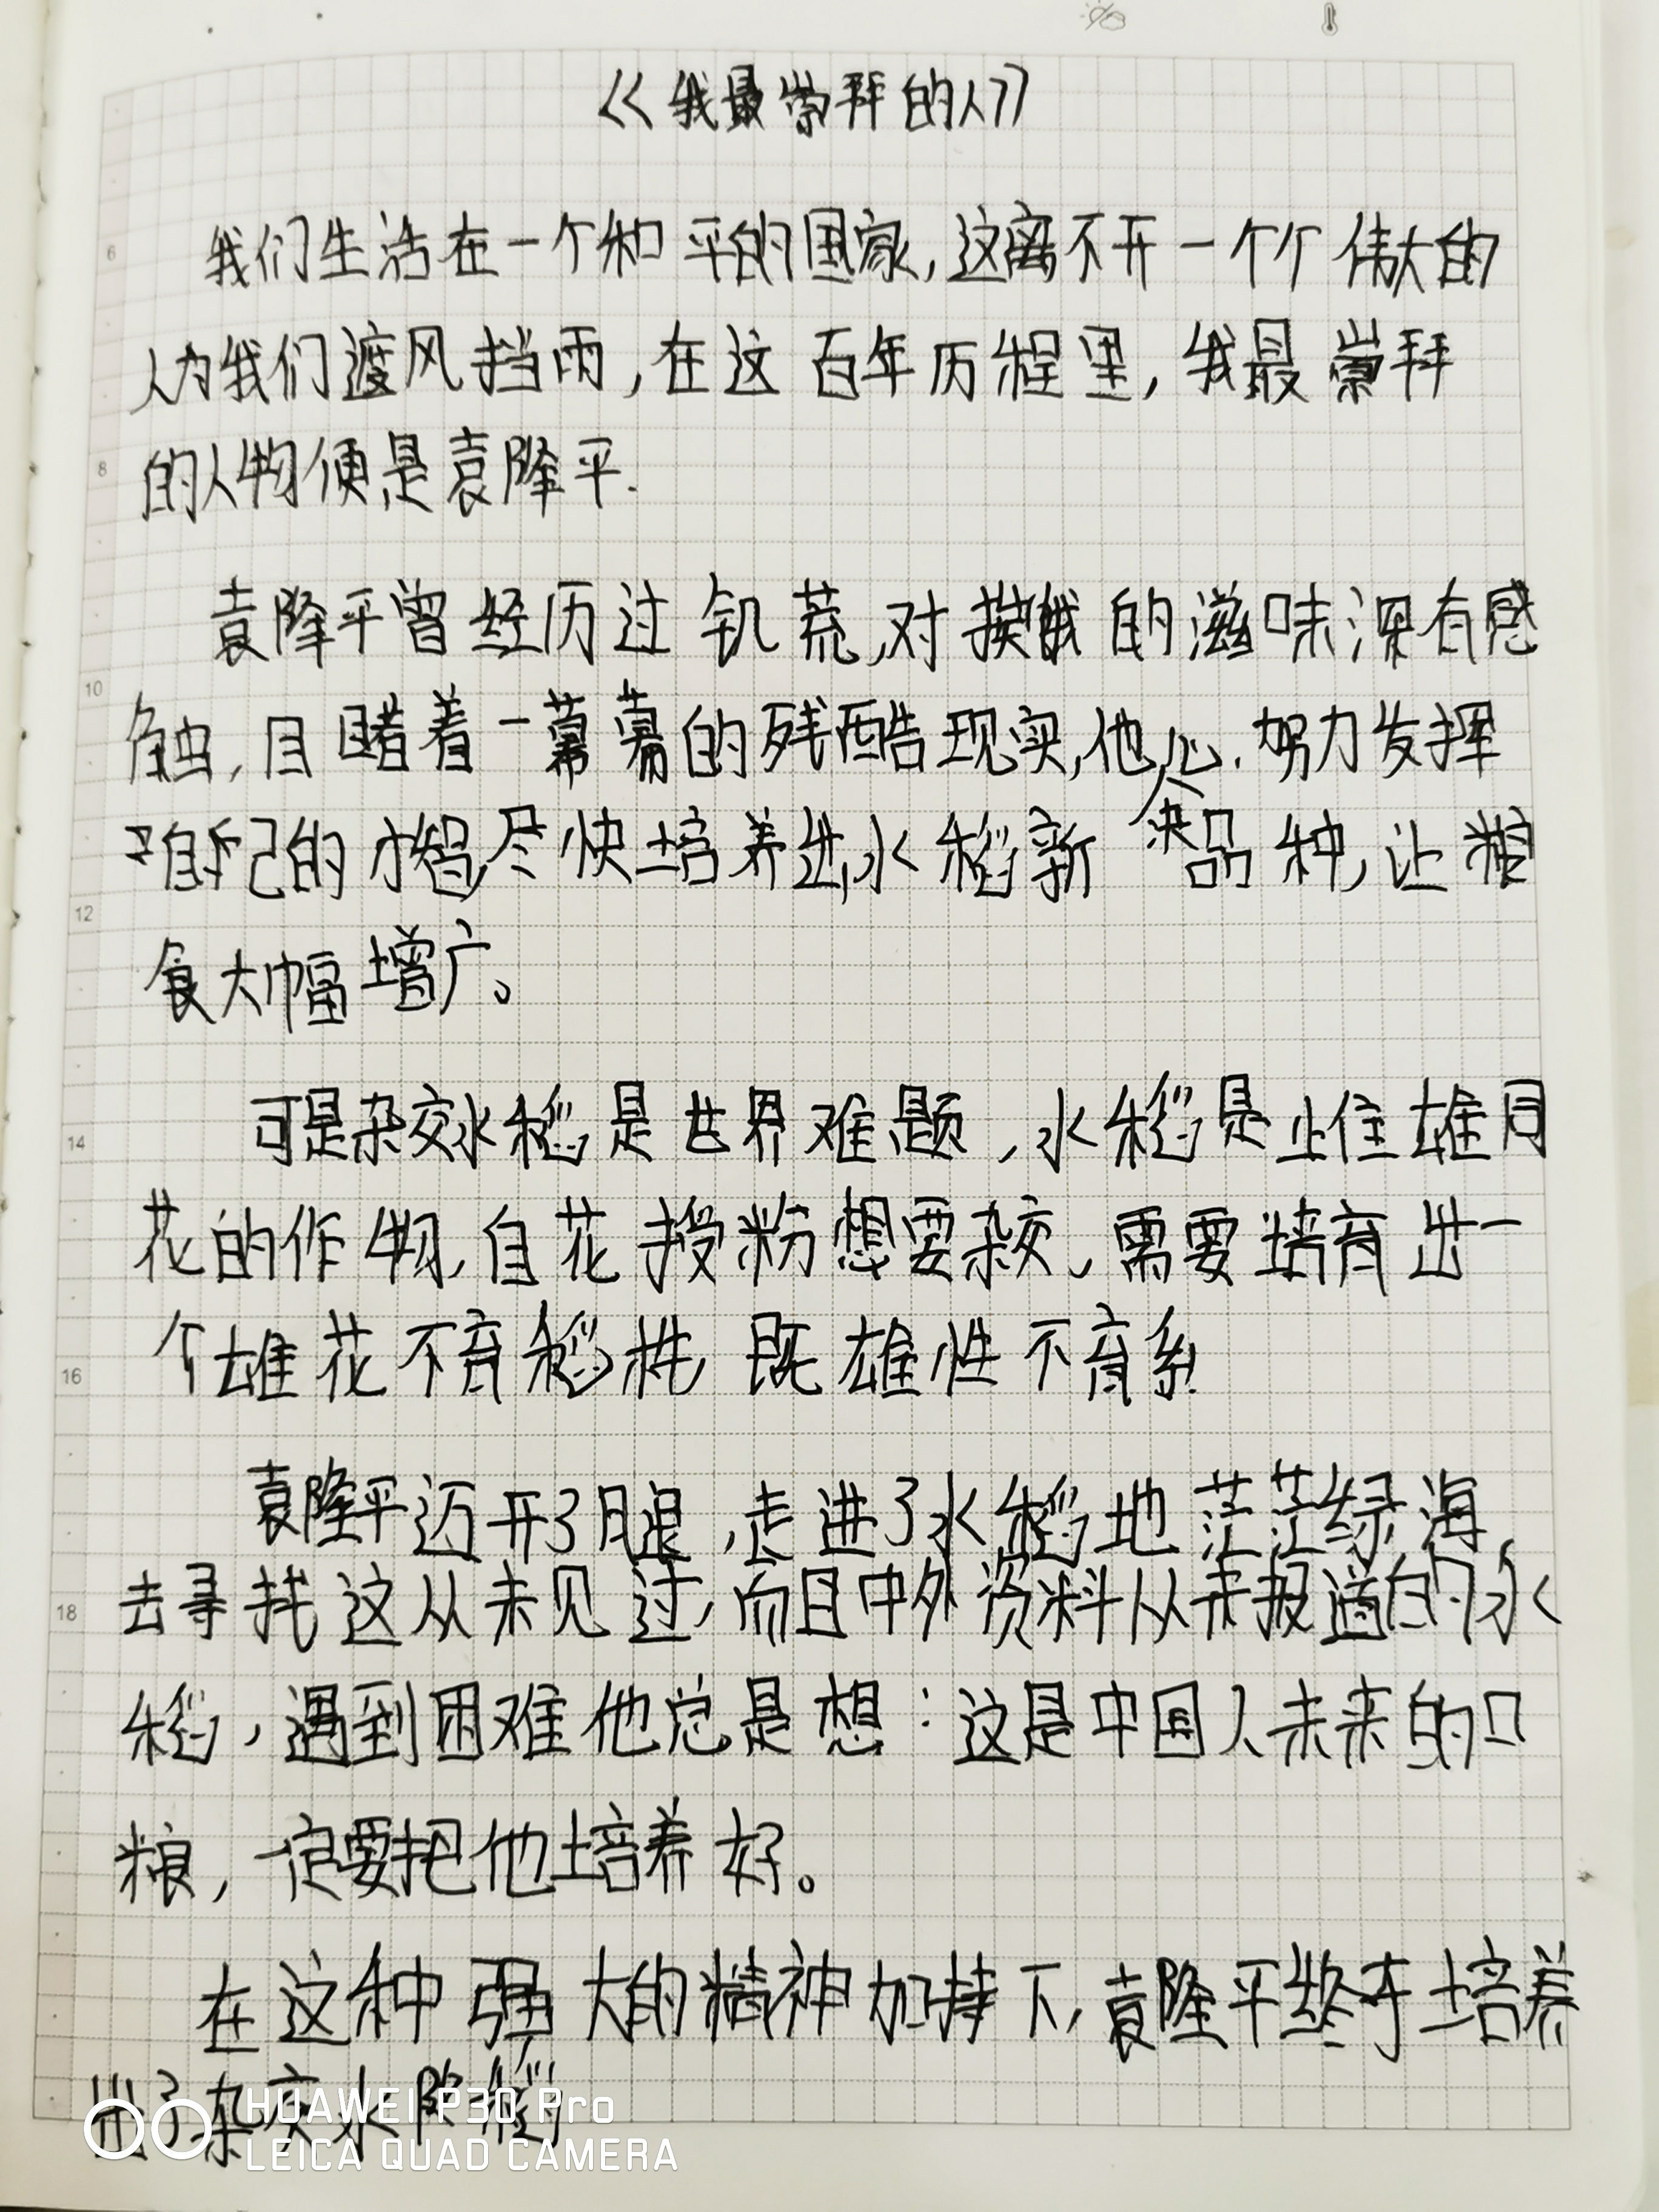 《我最崇拜的人》
我们生活在一个和平的国家,这离不开一个个伟大的
人为我们渡风挡雨,在这百年历程里,我最崇拜
的人物便是袁隆平.
袁隆平曾经历过饥荒,对挨饿的滋味深有感
触,目睹着一幕幕的残酷现实,他必.努力发挥
自己的才智,尽快培养出水稻新品种,让粮
食大幅增广。
可是杂交水稻是世界难题,水稻是雌雄同
花的作物,自花授粉想要杂交,需要培育出一
个雄花不育稻株,既雄性不育系
袁隆平迈开了腿,走进了水稻地茫茫绿海,
去寻找这从未见过,而且中外资料从未报道的水
稻,遇到困难他总是想:这是中国人未来的口
粮,一定要把他培养好。
在这种强大的精神加持下,袁隆平终于培养
出了杂交水稻
HUAWEI P30 Pro
LEICA QUAD CAMERA
6
8
10
12
14
16
18